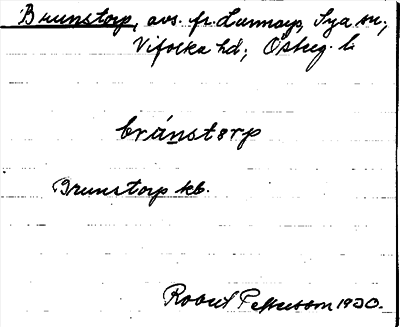 Brunstorp, avs. fr. Lunnorp, Sya sn;
Vifolka hd; Östeg. l.
bránstorp
Brunstorp kb.
Robert Pettersson 1930.